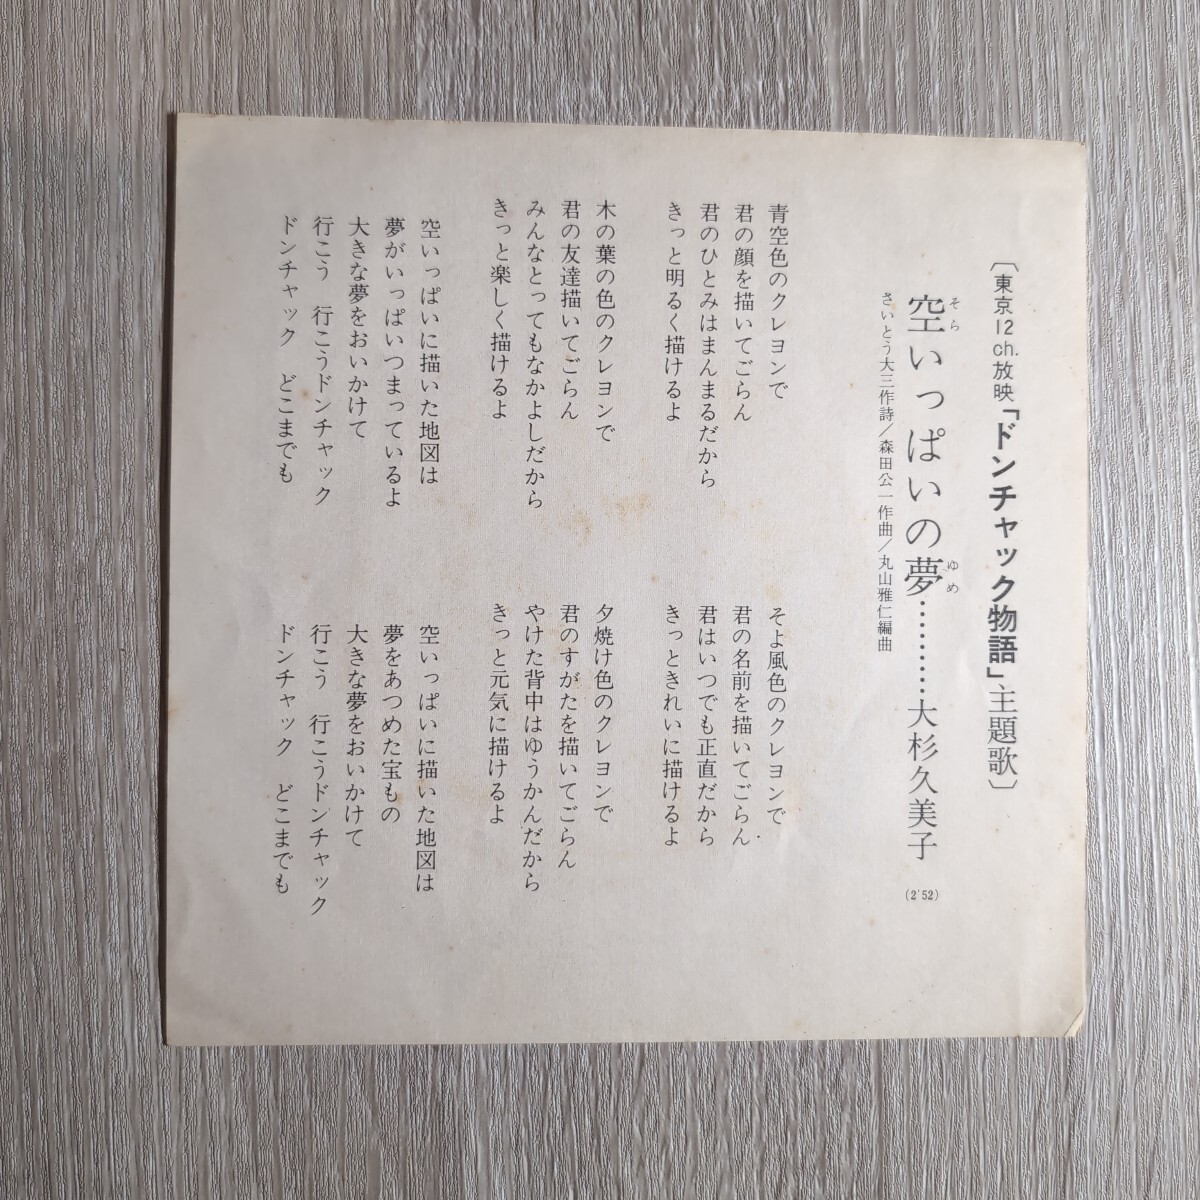 〔東京12ch.放映「ドンチャック物語」主題歌〕
空いっぱいの夢………大杉久美子 (2'52)
そら
ゆめ
さいとう大三作詩/森田公一作曲/丸山雅仁編曲
青空色のクレヨンで
君の顔を描いてごらん
君のひとみはまんまるだから
きっと明るく描けるよ
木の葉の色のクレヨンで
君の友達描いてごらん
みんなとってもなかよしだから
きっと楽しく描けるよ
空いっぱいに描いた地図は
夢がいっぱいつまっているよ
大きな夢をおいかけて
行こう 行こうドンチャック
ドンチャック どこまでも
そよ風色のクレヨンで
君の名前を描いてごらん
君はいつでも正直だから
きっときれいに描けるよ
夕焼け色のクレヨンで
君のすがたを描いてごらん
やけた背中はゆうかんだから
きっと元気に描けるよ
空いっぱいに描いた地図は
夢をあつめた宝もの
大きな夢をおいかけて
行こう 行こうドンチャック
ドンチャック どこまでも